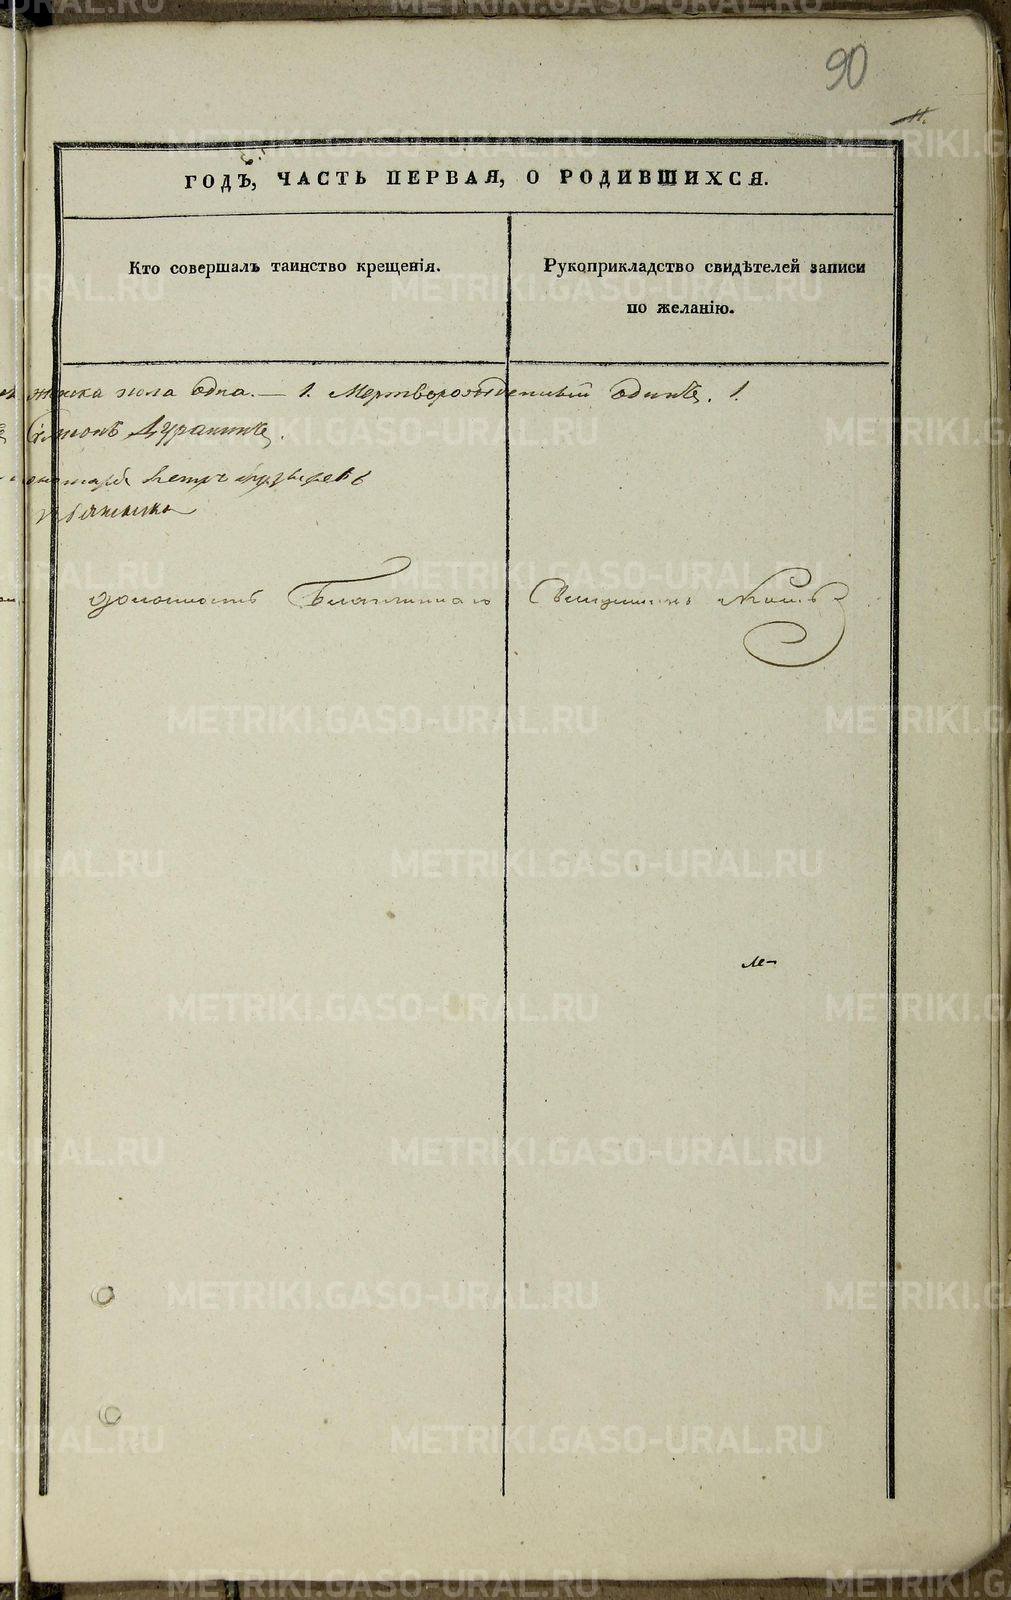 90
11.
ГОДЪ, ЧАСТЬ ПЕРВАЯ, О РОДИВШИХСЯ.
Кто совершалъ таинство крещенія.
Рукоприкладство свидѣтелей записи
по желанію.
женска пола одна. — 1. Мертворожденный одинъ. 1.
Симонъ Дуракинъ.
Петръ
должность Благочиннаго Священникъ
METRIKI.GASO-URAL.RU